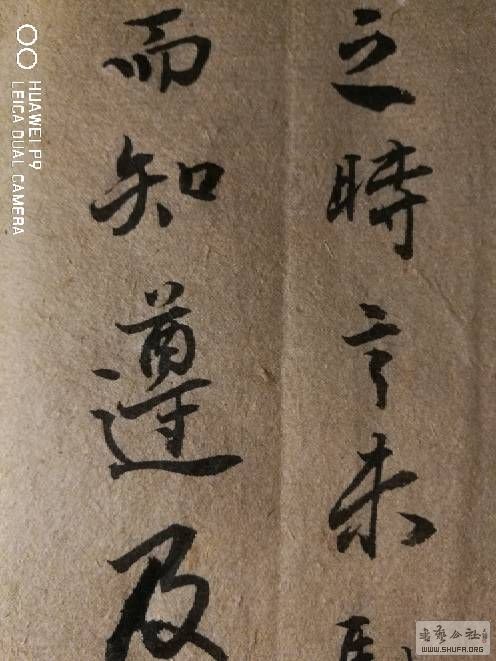 之時言未
而知遵及
HUAWEI P9
LEICA DUAL CAMERA
書藝公社
WWW.SHUFA.ORG